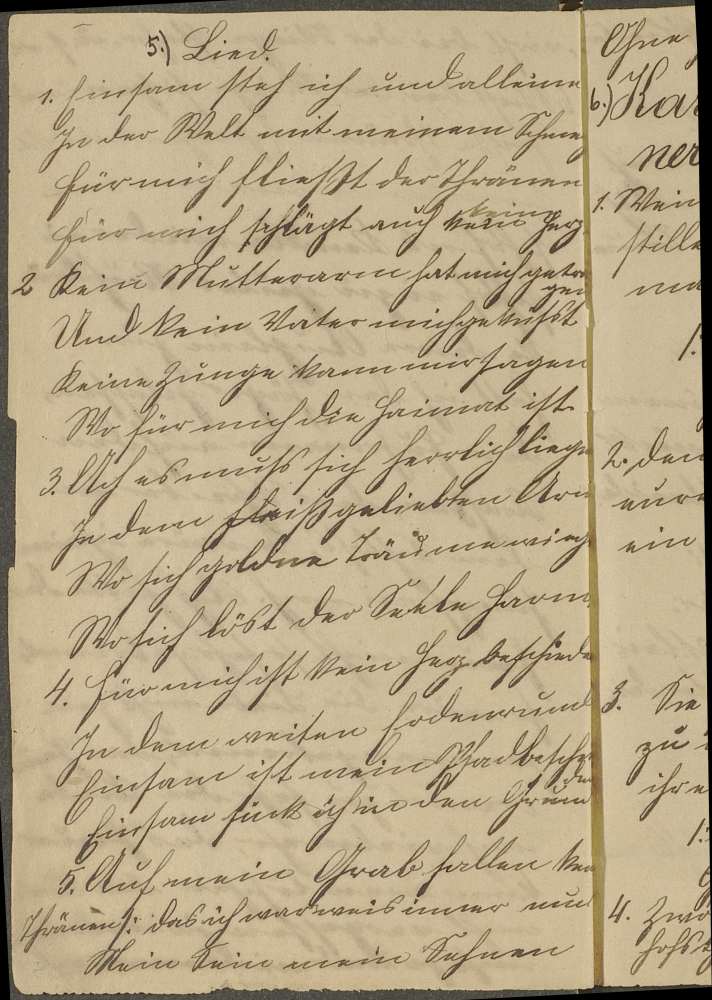 5.) Lied.
1. Einsam steh ich und alleine
In der Welt mit meinem Schmerz
Für mich fließt der Thränen
Für mich schlägt auch kein Herz
2 Kein Mutterarm hat mich getra
gen
Und kein Vater mich geküßt
Keine Zunge kann mir sagen
Wo für mich die Heimat ist
3. Ach es muß sich herrlich liege
In dem heißgeliebten Arm
Wo sich goldne Träume wieg
Wo sich löst der Seele Harm
4. Für mich ist kein Herz beschiede
In dem weiten Erdenrund
Einsam ist mein Pfad beschie
den
Einsam sink ich in den Grund
5. Auf mein Grab fallen kei
Thränen |: das ich war weis immer nur
Mein Sein mein Sehnen
Ohne
6.) Kar
ner
1. Wein
stille
ma
|:
2. Den
eure
ein
3. Sie
zu
ihre
|:
4. Zwo